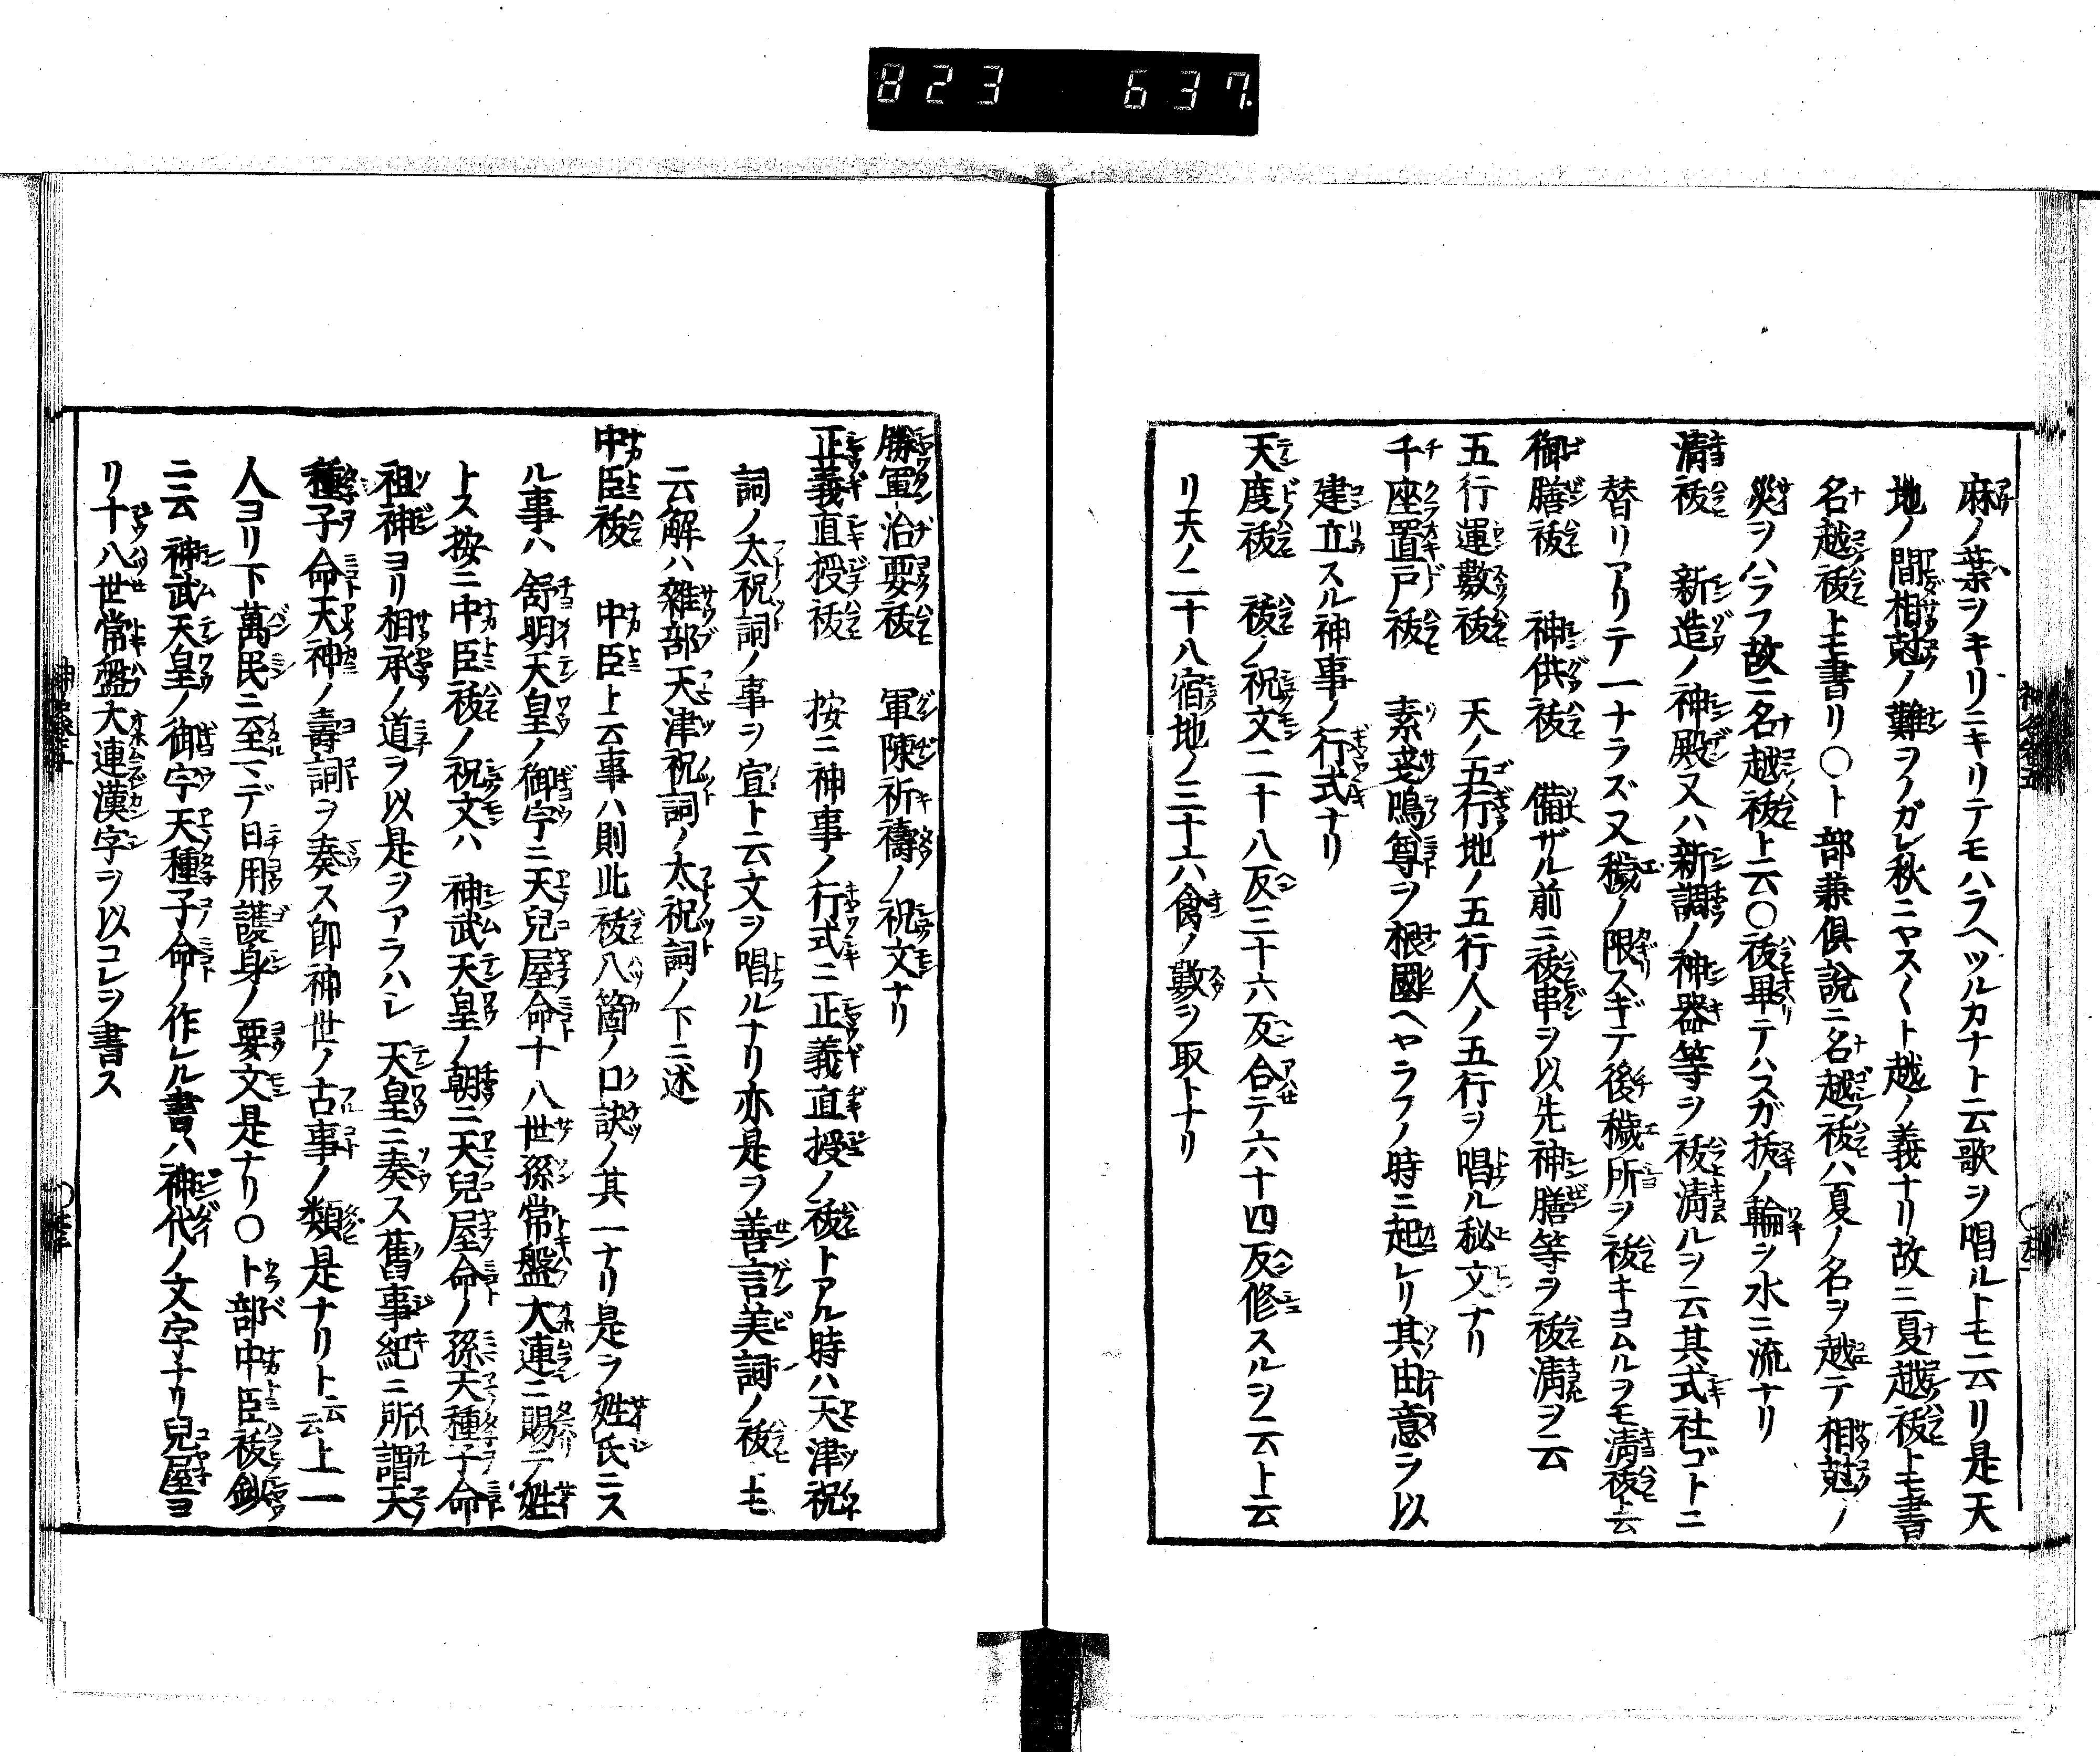 823 637.
麻ノ葉ヲキリニキリテモハラヘツルカナト云歌ヲ唱ルトモ云リ是天
地ノ間相尅ノ難ヲノガレ秋ニヤス〱ト越ノ義ナリ故ニ夏越祓トモ書
名越祓トモ書リ○卜部兼倶説ニ名越祓ハ夏ノ名ヲ越テ相尅ノ
災ヲハラフ故ニ名越祓ト云○祓畢テハスガ抜ノ輪ヲ水ニ流ナリ
清祓 新造ノ神殿又ハ新調ノ神器等ヲ祓清ルヲ云其式社ゴトニ
替リアリテ一ナラズ又穢ノ限スギテ後穢所ヲ祓キヨムルヲモ清祓ト云
御膳祓 神供祓 備ザル前ニ祓串ヲ以先神膳等ヲ祓清ヲ云
五行運數祓 天ノ五行地ノ五行人ノ五行ヲ唱ル秘文ナリ
千座置戸祓 素戔嗚尊ヲ根國ヘヤラフノ時ニ起レリ其由意ヲ以
建立スル神事ノ行式ナリ
天度祓 祓ノ祝文二十八反三十六反合テ六十四反修スルヲ云ト云
リ天ノ二十八宿地ノ三十六禽ノ數ヲ取トナリ
勝軍治要祓 軍陳祈禱ノ祝文ナリ
正義直授祓 按ニ神事ノ行式ニ正義直授ノ祓トアル時ハ天津祝
詞ノ太祝詞ノ事ヲ宣ト云文ヲ唱ルナリ亦是ヲ善言美詞ノ祓トモ
云解ハ雜部天津祝詞ノ太祝詞ノ下ニ述
中臣祓 中臣ト云事ハ則此祓八箇ノ口訣ノ其一ナリ是ヲ姓氏ニス
ル事ハ舒明天皇ノ御宇ニ天兒屋命十八世孫常盤大連ニ賜テ姓
トス按ニ中臣祓ノ祝文ハ 神武天皇ノ朝ニ天兒屋命ノ孫天種子命
祖神ヨリ相承ノ道ヲ以是ヲアラハシ 天皇ニ奏ス舊事紀ニ所謂天
種子命天神ノ壽詞ヲ奏ス即神世ノ古事ノ類是ナリト云云上一
人ヨリ下萬民ニ至マデ日用護身ノ要文是ナリ○卜部中臣祓鈔
ニ云 神武天皇ノ御宇天種子命ノ作レル書ハ神代ノ文字ナリ兒屋ヨ
リ十八世常盤大連漢字ヲ以コレヲ書ス